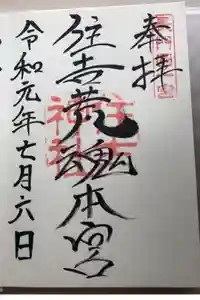 奉拝
住吉荒魂本宮
住吉
神社
令和元年七月六日